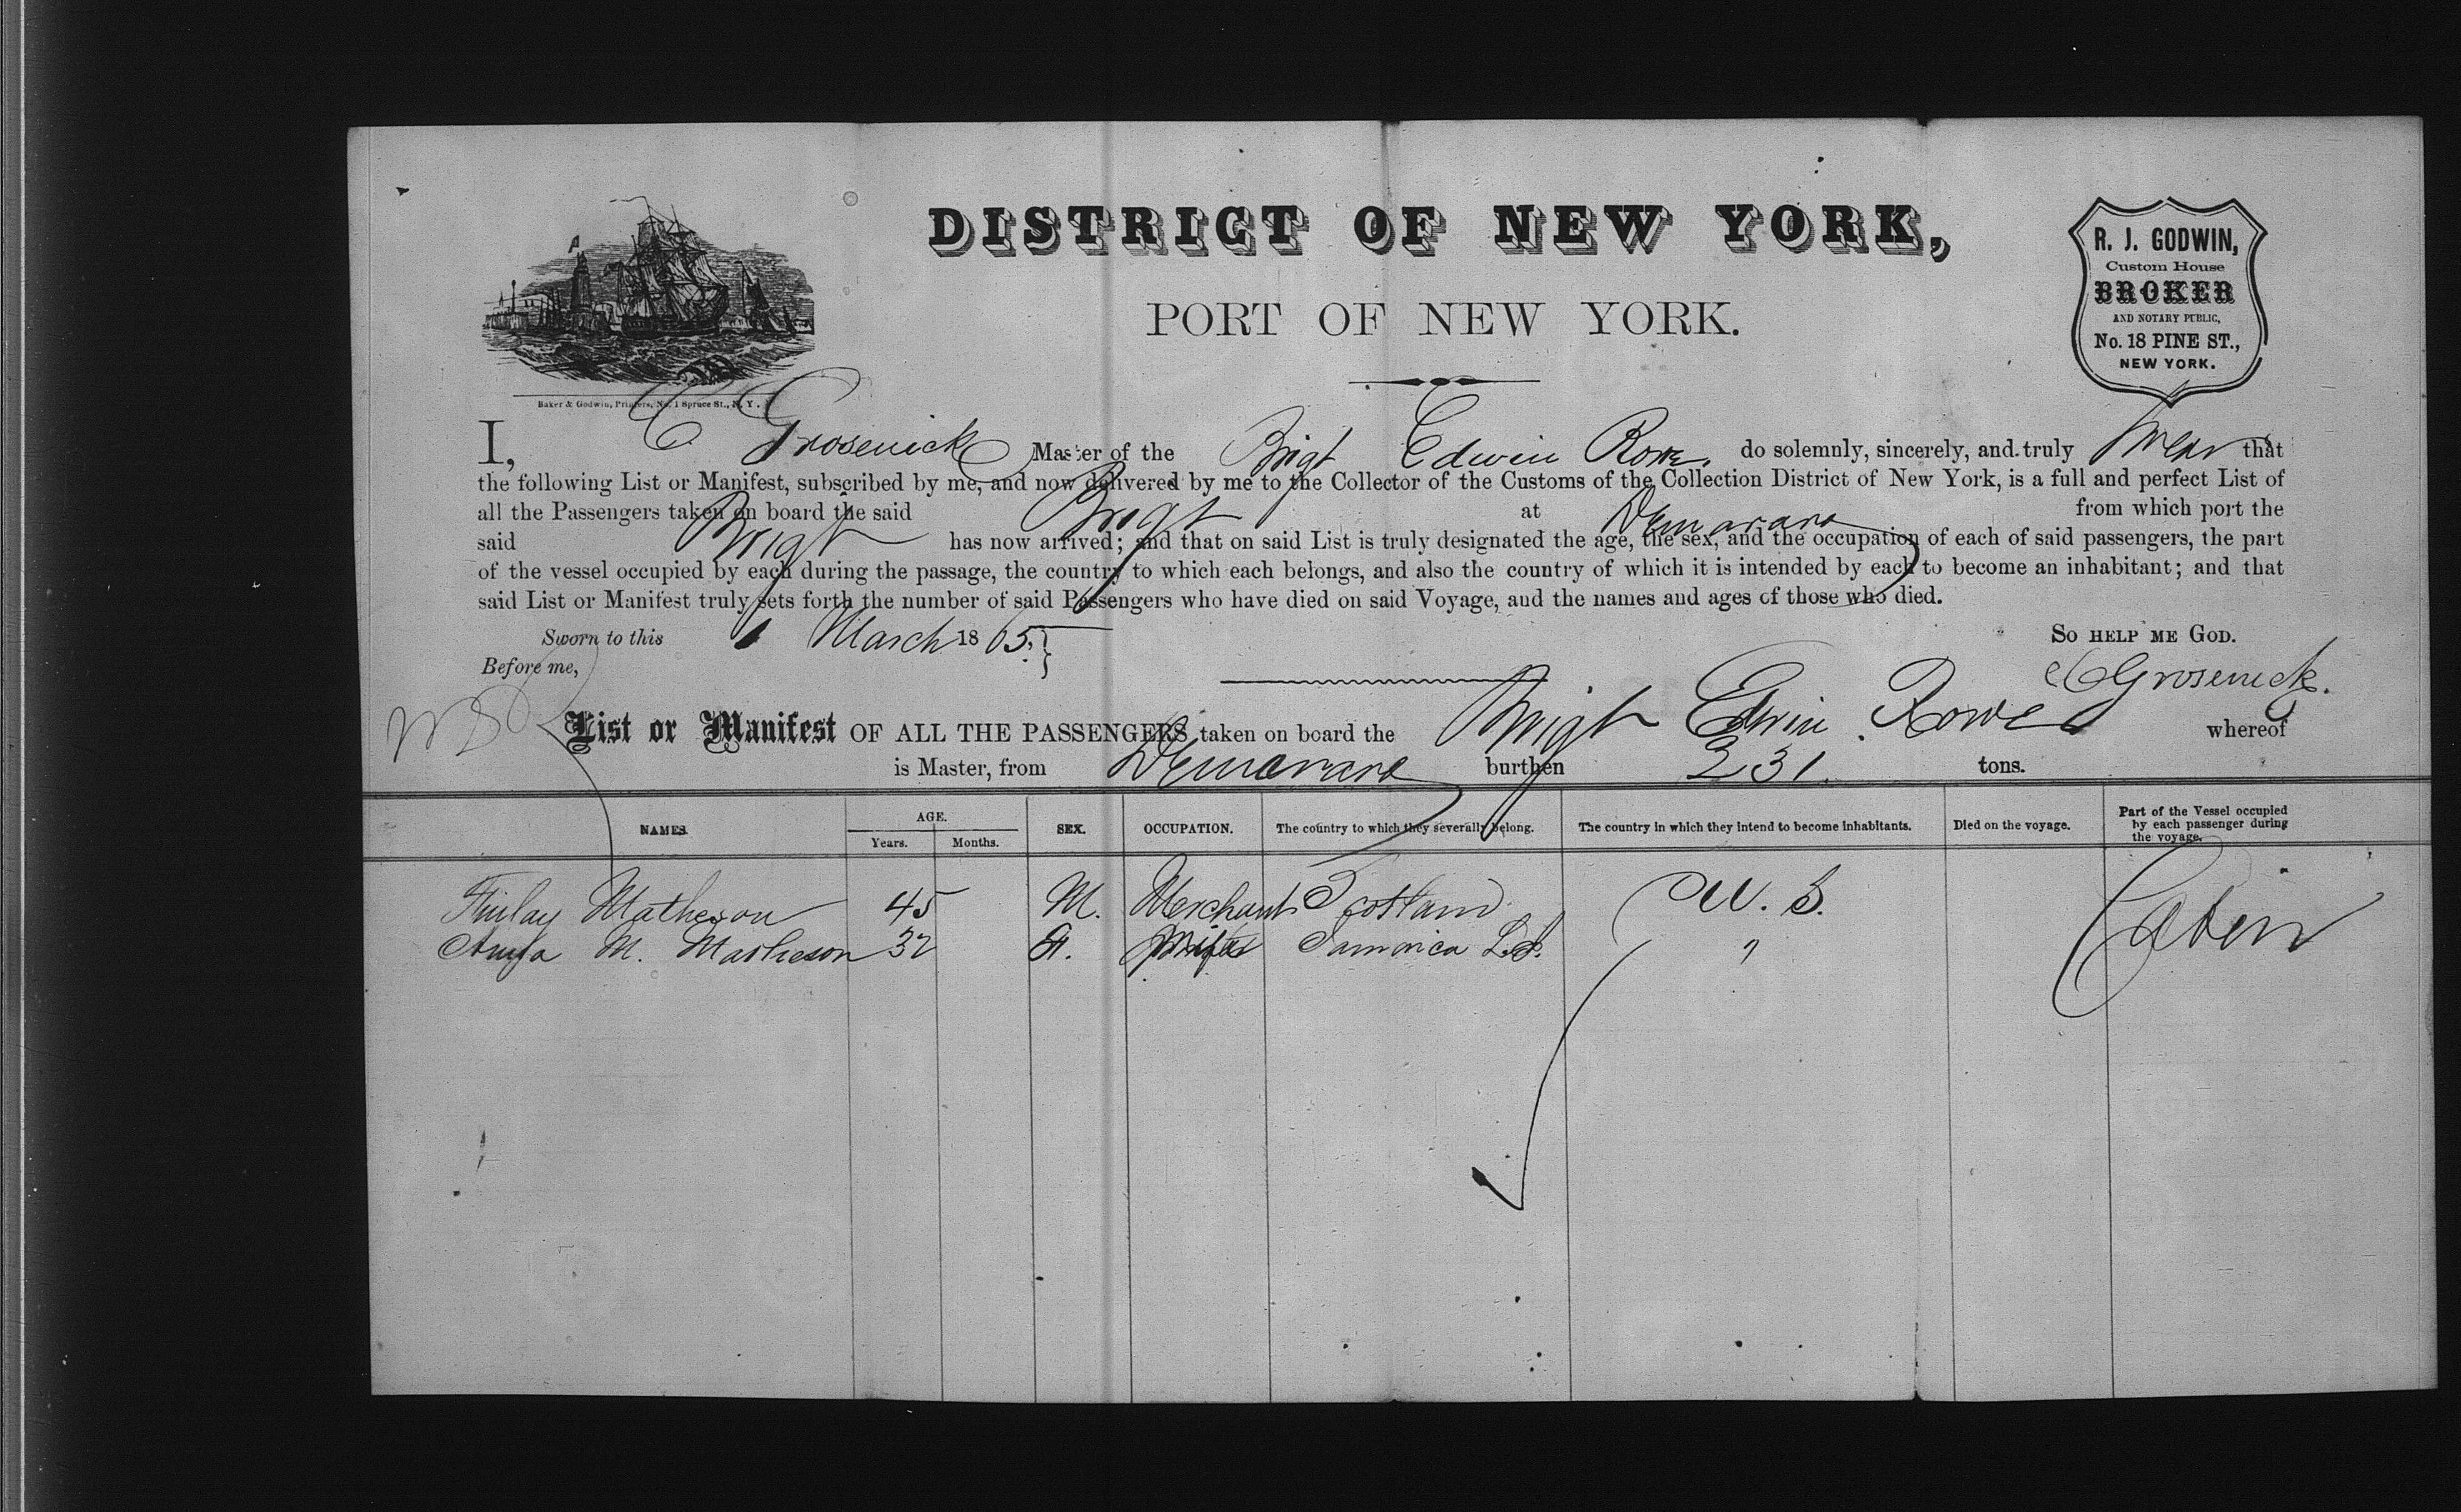 DISTRICT OF NEW YORK,
PORT OF NEW YORK.
R. J. GODWIN,
Custom House
BROKER
AND NOTARY PUBLIC,
No. 18 PINE ST.,
NEW YORK.
Baker & Godwin, Printers, No. 1 Spruce St., N. Y.
I, C Grosenick Master of the Brigt Edwin Rowe, do solemnly, sincerely, and truly swear that
the following List or Manifest, subscribed by me, and now delivered by me to the Collector of the Customs of the Collection District of New York, is a full and perfect List of
all the Passengers taken on board the said Brigt at Demarara from which port the
said Brigt has now arrived; and that on said List is truly designated the age, the sex, and the occupation of each of said passengers, the part
of the vessel occupied by each during the passage, the country to which each belongs, and also the country of which it is intended by each to become an inhabitant; and that
said List or Manifest truly sets forth the number of said Passengers who have died on said Voyage, and the names and ages of those who died.
Sworn to this 1 March 1865. } SO HELP ME GOD.
Before me, C Grosenick.
List or Manifest OF ALL THE PASSENGERS taken on board the Brigt Edwin Rowe whereof
is Master, from Demarara burthen 231. tons.
NAMES. AGE. Years. Months. SEX. OCCUPATION. The country to which they severally belong. The country in which they intend to become inhabitants. Died on the voyage. Part of the Vessel occupied by each passenger during the voyage.
Finlay Matheson 45 M. Merchant Scotland U. S. Cabin
M. Matheson 32 F. Wife Jamaica "